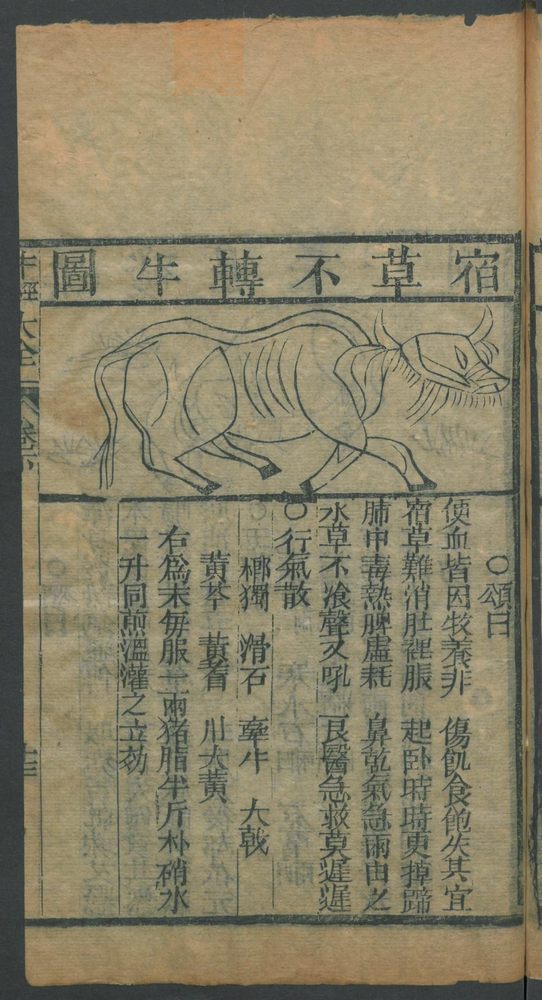 宿草不轉牛圖
○頌曰
便血皆因牧養非　傷飢食飽失其宜
宿草難消肚裡脹　起卧時時更掉蹄
肺中毒熱脾虛耗　鼻乾氣急兩由之
水草不飡聲又吼　良醫急救莫遲遲
○行氣散
榔獨　滑石　牽牛　大戟
黄芩　黄耆　川大黄
右爲末每服二兩猪脂半斤朴硝水
一升同煎溫灌之立効
牛經大全
卷下